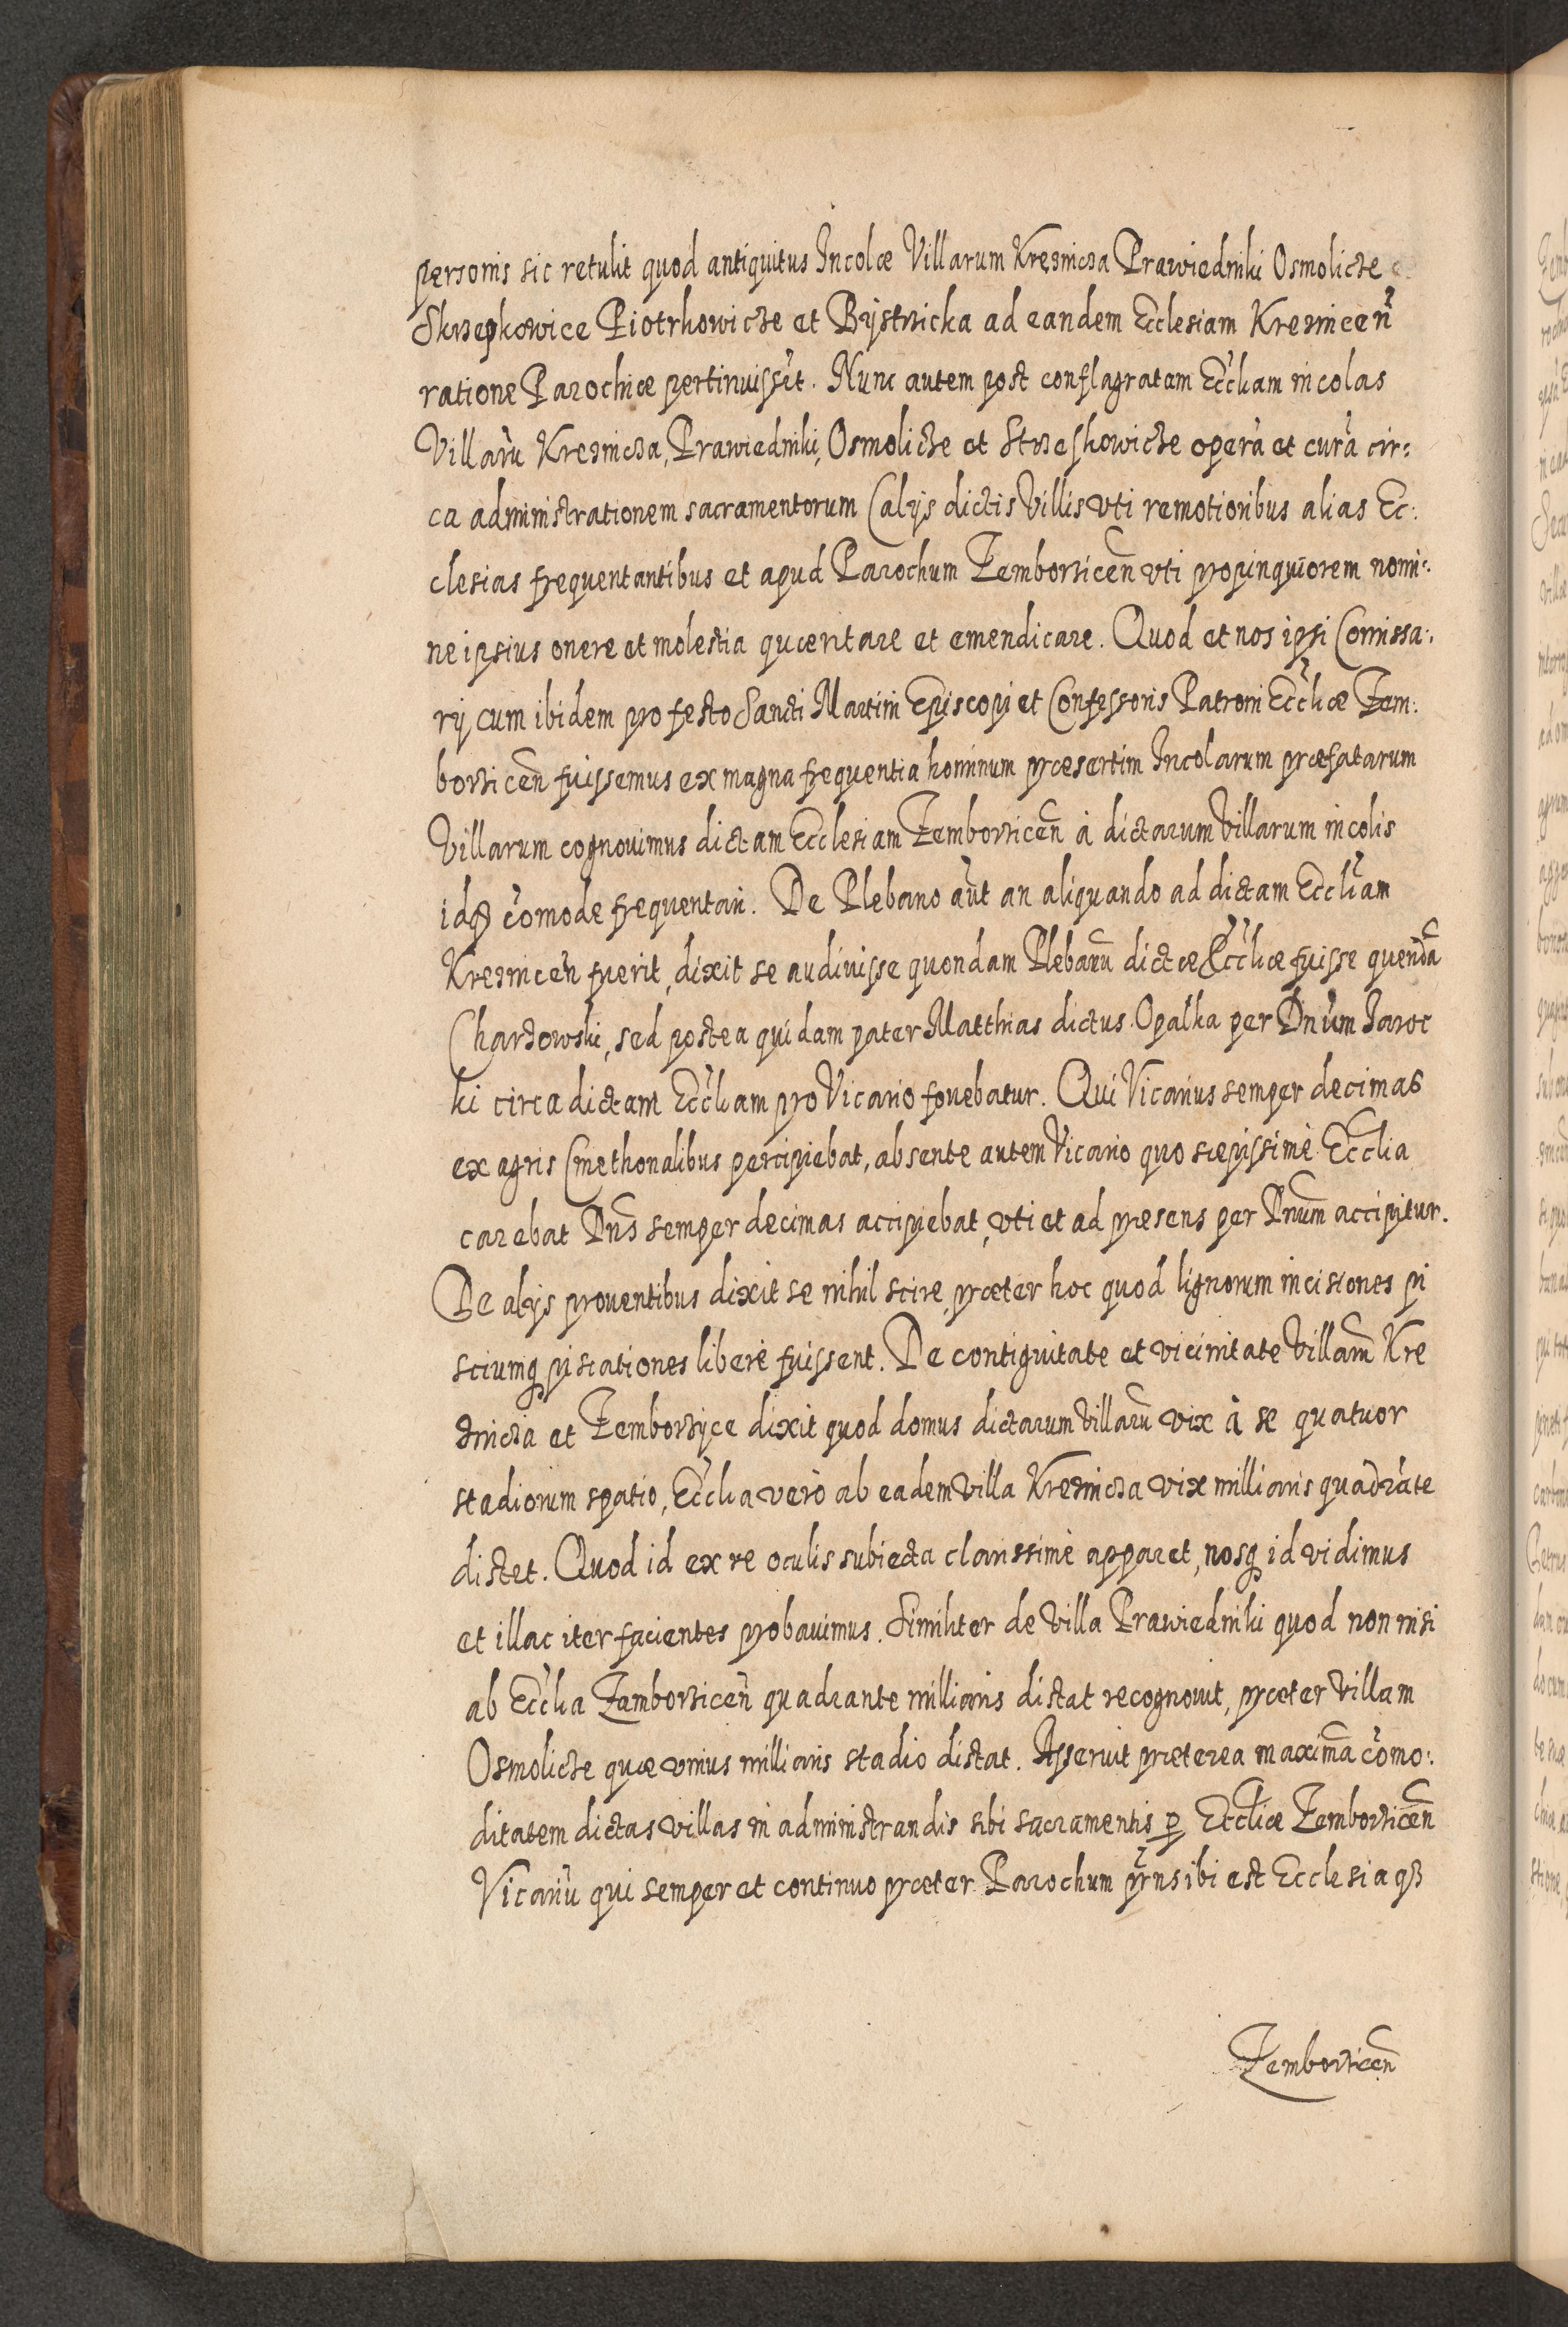 personis sic retulit quod antiquitus Incolæ Villarum Kreznicza Prawiedniki Osmolicze
Skrzepkowice Piotrkowicze et Bÿstrzicka ad eandem Ecclesiam Kreznicen̄
ratione Parochiæ pertinuissēt. Nunc autem post conflagratam Eccl̄iam incolas
Villarū Kreznicza, Prawiedniki, Osmolicze et Strzeskowicze operà et curà cir:
ca administrationem sacramentorum (alijs dictis Villis vti remotioribus alias Ec:
clesias frequentantibus et apud Parochum Zemborzicen̄ vti propinquiorem nomi:
ne ipsius onere et molestia quæritare et emendicare. Quod et nos ipsi Com̄issa:
rij cum ibidem pro festo Sancti Martini Episcopi et Confessoris Patroni Eccl̄iæ Zem:
borzicen̄ fuissemus ex magna frequentia hominum præsertim Incolarum præfatarum
Villarum cognouimus dictam Ecclesiam Zemborzicen̄ à dictarum Villarum incolis
idq̃ com̄ode frequentari. De Plebano aūt an aliquando ad dictam Eccl̄iam
Kreznicen̄ fuerit, dixit se audiuisse quondam Plebanū dictæ Eccl̄iæ fuisse quendā
Charzowski, sed postea quidam pater Matthias dictus Opalka per Dn̄um Jaroc
ki circa dictam Eccl̄iam pro Vicario fouebatur. Qui Vicarius semper decimas
ex agris Cmethonalibus percipiebat, absente autem Vicario quo sæpissimè Eccl̄ia
carebat Dn̄s semper decimas accipiebat, vti et ad præsens per Dn̄um accipitur.
De alijs prouentibus dixit se nihil scire, præter hoc quod lignorum incisiones pi
sciumq̃ piscationes liberè fuissent. De contiguitate et vicinitate Villarū Kre
znicza et Zemborzÿce dixit quod domus dictarum Villarū vix à se quatuor
stadiorum spatio, Eccl̄ia verò ab eadem Villa Kreznicza vix milliaris quadrāte
distet. Quod id ex re oculis subiecta clarissimè apparet, nosq̃ id vidimus
et illac iter facientes probauimus. Similiter de Villa Prawiedniki quod non nisi
ab Eccl̄ia Zemborzicen̄ quadrante milliaris distat recognouit, præter Villam
Osmolicze quæ vnius milliaris stadio distat. Asseruit præterea maximā com̄o:
ditatem dictas Villas in administrandis sibi sacramentis p̱ Eccl̄iæ Zemborzicen̄
Vicariū qui semper et continuo præter Parochum pr̄ns ibi est Ecclesiaq̃
Zemborzicen̄